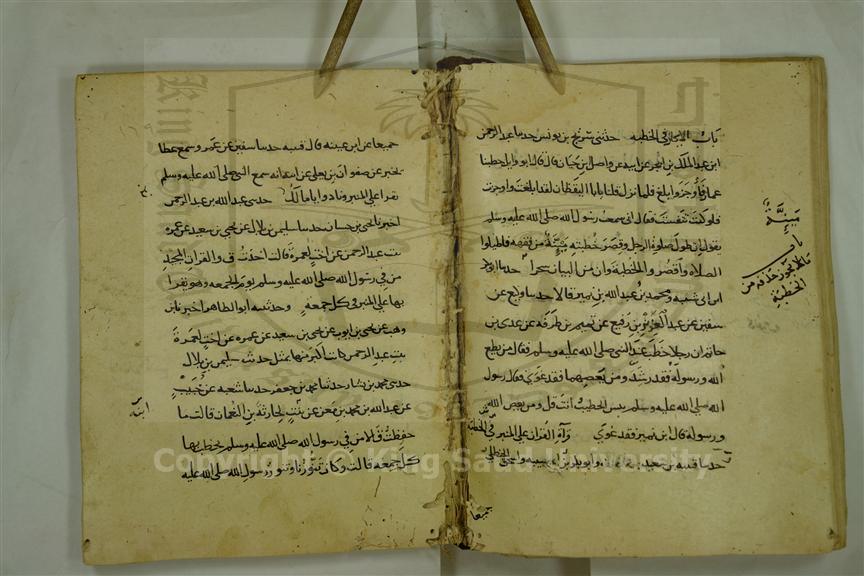 باب الايجاز في الخطبه حدثني سريج بن يونس حدسا عبد الرحمن
ابن عبد الملك بن ابجر عن ابيه عن واصل بن حيان قال قال ابو وايل خطبنا
عمار فاوجز وابلغ فلما نزل قلنا يا ابا اليقظان لقد ابلغت واوجزت
فلو كنت تنفست فقال اني سمعت رسول الله صلى الله عليه وسلم
يقول ان طول صلوة الرجل وقصر خطبته مئنة من فقهه فاطيلوا
الصلاه واقصروا الخطبة وان من البيان سحرا حدسا ابو بكر
ابن ابي شيبه ومحمد بن عبد الله بن نمير قالا حدسا وكيع عن
سفين عن عبد العزيز بن رفيع عن تميم بن طرفه عن عدي بن
حاتم ان رجلا خطب عند النبي صلى الله عليه وسلم فقال من يطع
الله ورسوله فقد رشد ومن يعصهما فقد غوي فقال رسول
الله صلى الله عليه وسلم بيس الخطيب انت قل ومن يعص الله
ورسوله قال ابن نمير فقد غوي قرآة القرآن على المنبر في الخطبة
حدسا قتيبه بن سعيد وابو بكر بن ابي شيبه واسحق الحنظلي
جميعا
مئنة
باب
ما لا يجوز حذفه من
الخطبة
جميعا عن ابن عيينه قال قتيبه حدسا سفين عن عمرو سمع عطا
يخبر عن صفوان بن يعلى عن ابيه انه سمع النبي صلى الله عليه وسلم
يقرا على المنبر ونادوا يا مالك حدثني عبد الله بن عبد الرحمن
اخبرنا يحيى بن حسان حدسا سليمن بن بلال عن يحيى بن سعيد عن عمره
بنت عبد الرحمن عن اخت لعمرة قالت اخذت ق والقرآن المجيد
من في رسول الله صلى الله عليه وسلم يوم الجمعه وهو يقرا
بها على المنبر في كل جمعه وحدثنيه ابو الطاهر اخبرنا ابن
وهب عن يحيى بن ايوب عن يحيى بن سعيد عن عمره عن اخت لعمرة
بنت عبد الرحمن كانت اكبر منها بمثل حديث سليمن بن بلال
حدثني محمد بن بشار حدثنا محمد بن جعفر حدسا شعبه عن خبيب
عن عبد الله بن محمد بن معن عن بنت لحارثة بن النعمان قالت ما
حفظت ق الا من في رسول الله صلى الله عليه وسلم يخطب بها
كل جمعه قالت وكان تنورنا وتنور رسول الله صلى الله عليه
Copyright © King Saud University